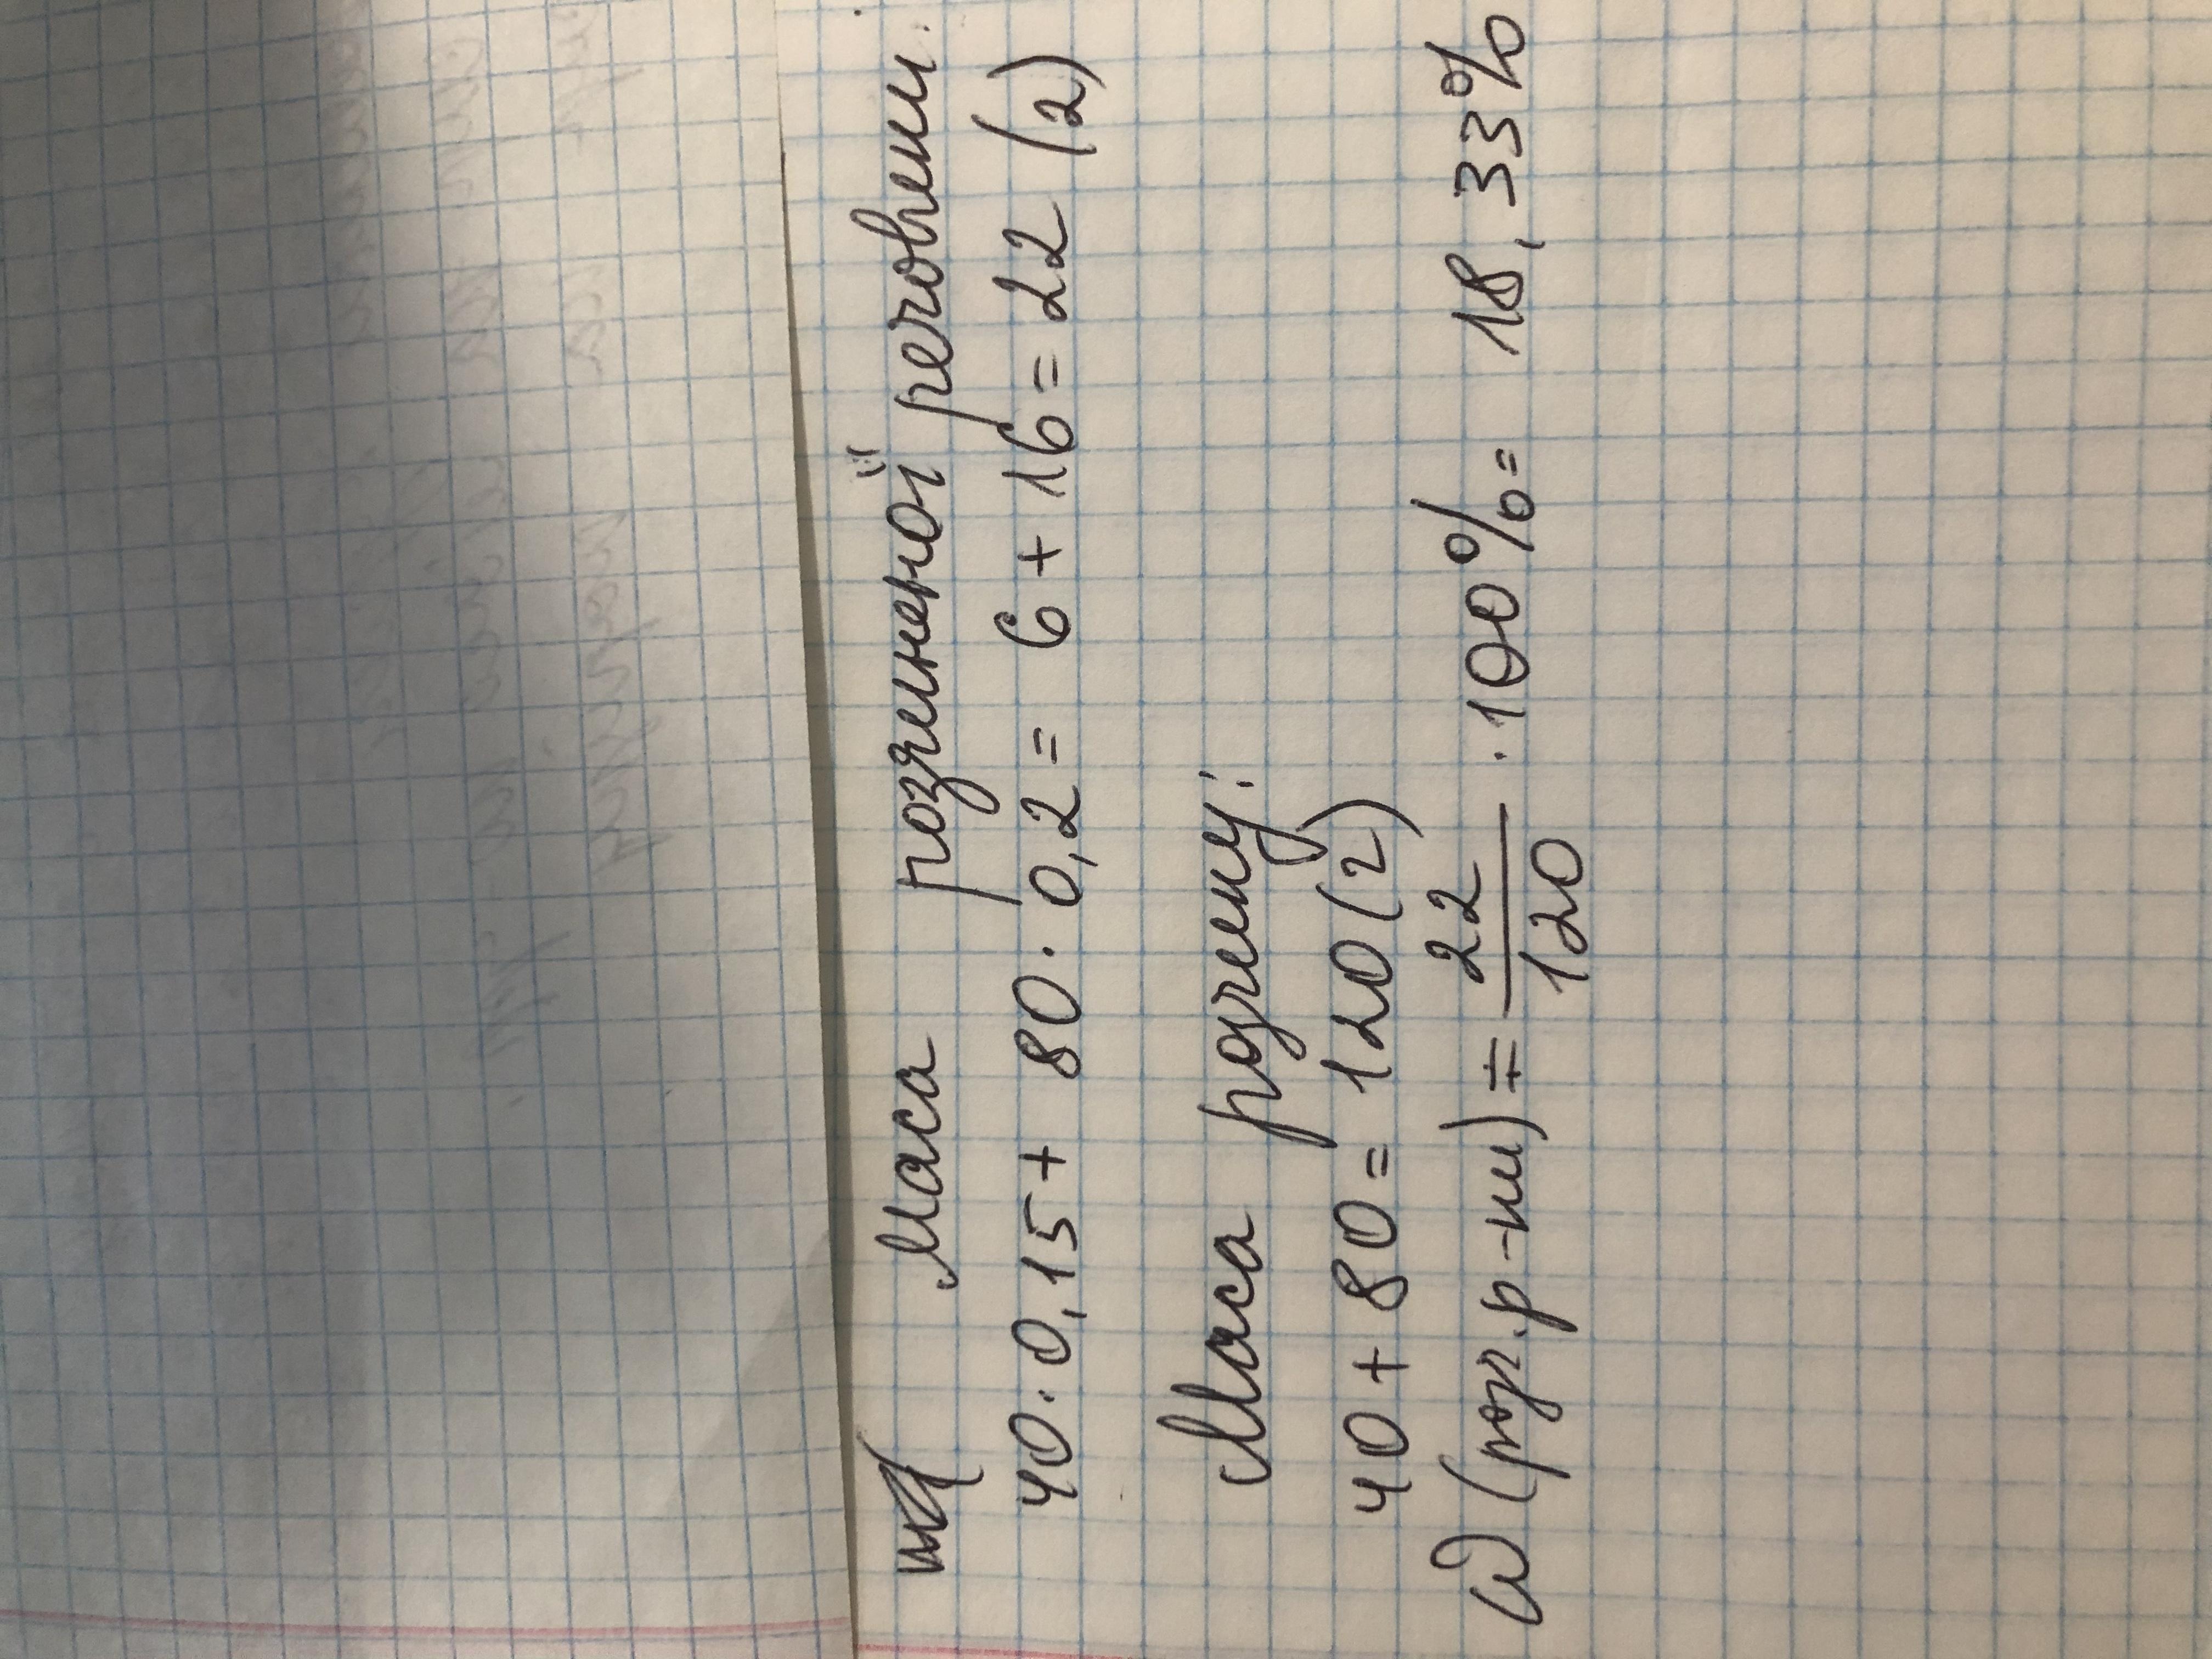 Маса розчиненої речовини:
40·0,15+ 80·0,2= 6+16=22 (г)
Маса розчину:
40+80=120(г)
ω (розч.р-ни) = 22/120 ·100%= 18,33%